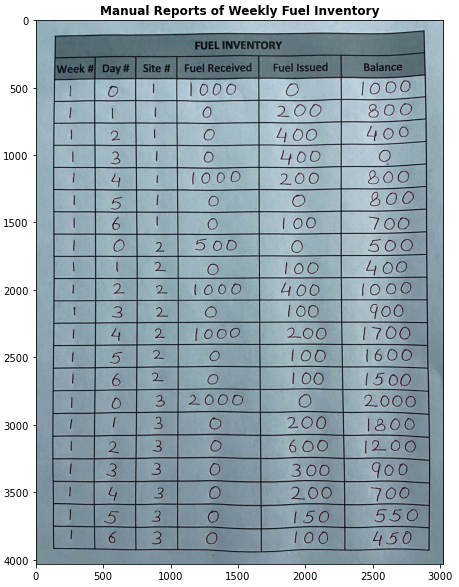 Manual Reports of Weekly Fuel Inventory
FUEL INVENTORY
Week # Day # Site # Fuel Received Fuel Issued Balance
1 0 1 1000 0 1000
1 1 1 0 200 800
1 2 1 0 400 400
1 3 1 0 400 0
1 4 1 1000 200 800
1 5 1 0 0 800
1 6 1 0 100 700
1 0 2 500 0 500
1 1 2 0 100 400
1 2 2 1000 400 1000
1 3 2 0 100 900
1 4 2 1000 200 1700
1 5 2 0 100 1600
1 6 2 0 100 1500
1 0 3 2000 0 2000
1 1 3 0 200 1800
1 2 3 0 600 1200
1 3 3 0 300 900
1 4 3 0 200 700
1 5 3 0 150 550
1 6 3 0 100 450
0
500
1000
1500
2000
2500
3000
3500
4000
0 500 1000 1500 2000 2500 3000